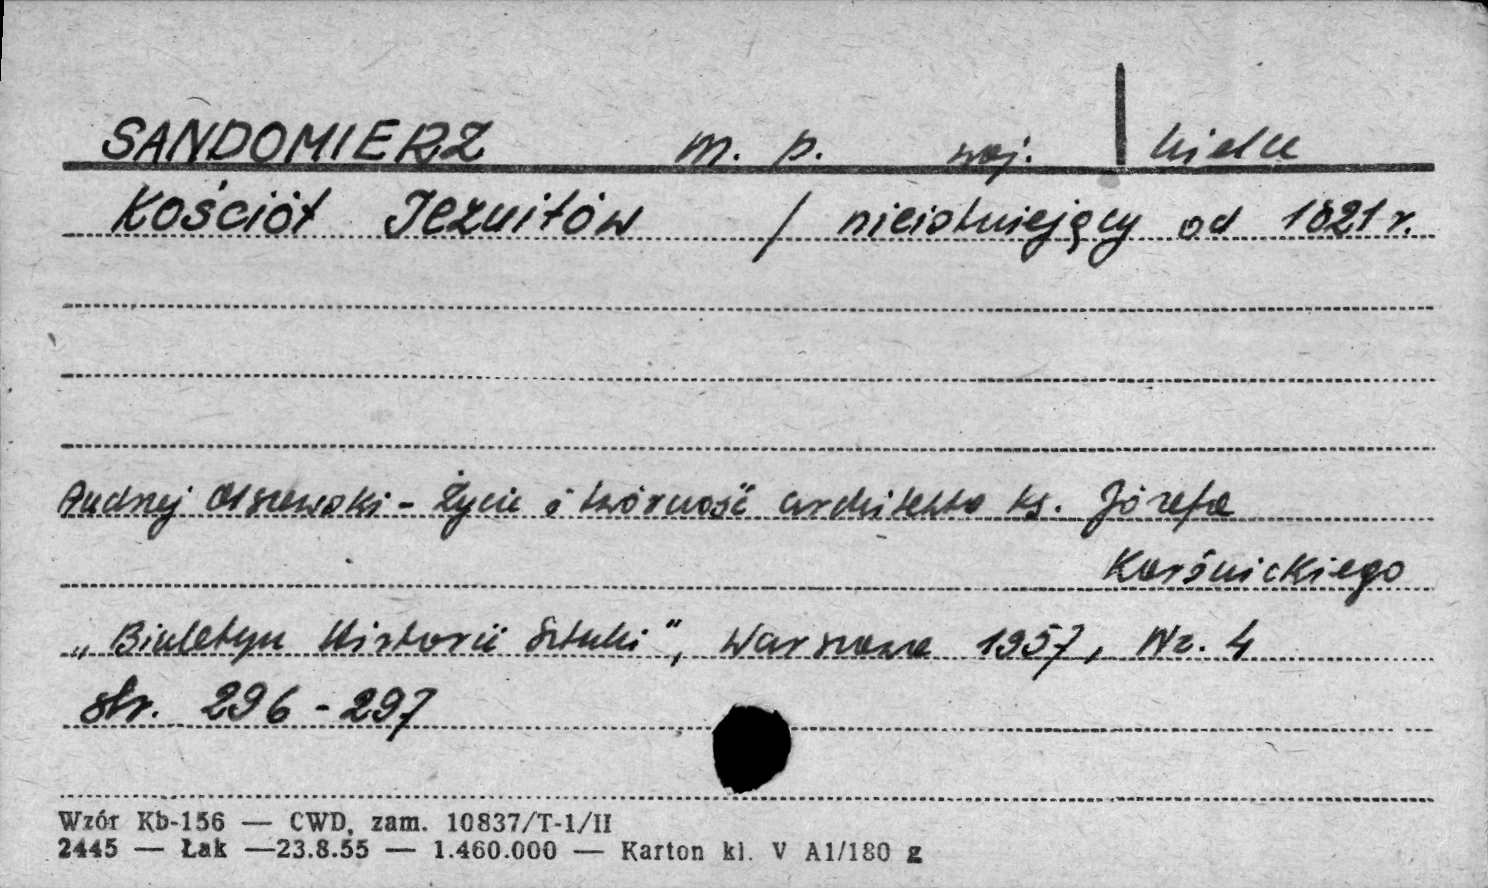 SANDOMIERZ m. p. woj. Kielce
Kościół Jezuitów / nieistniejący od 1821 r.
Andrzej Olszewski - Życie i twórczość architekta ks. Józefa
Karśnickiego
„Biuletyn Historii Sztuki", Warszawa 1957, Nr. 4
str. 296 - 297
Wzór Kb-156 — CWD, zam. 10837/T-1/II
2445 — Łak —23.8.55 — 1.460.000 — Karton kl. V A1/180 g